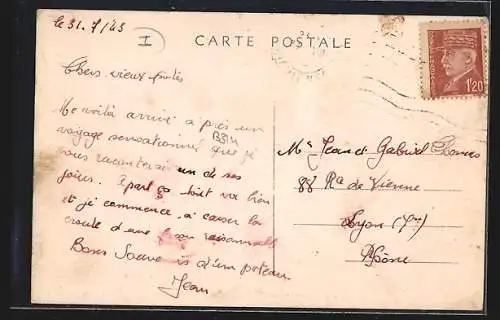 le 31.7/43
I
CARTE POSTALE
1f20
Chers vieux
Me voilà arrivé après un
voyage sensationnel que je
vous raconterai un de ces
jours. à part ça tout va bien
et je commence à casser la
croute d'une façon
Bons d'un poteau
Jean
Mrs Jean et Gabriel
88 Rte de Vienne
Lyon
Rhône